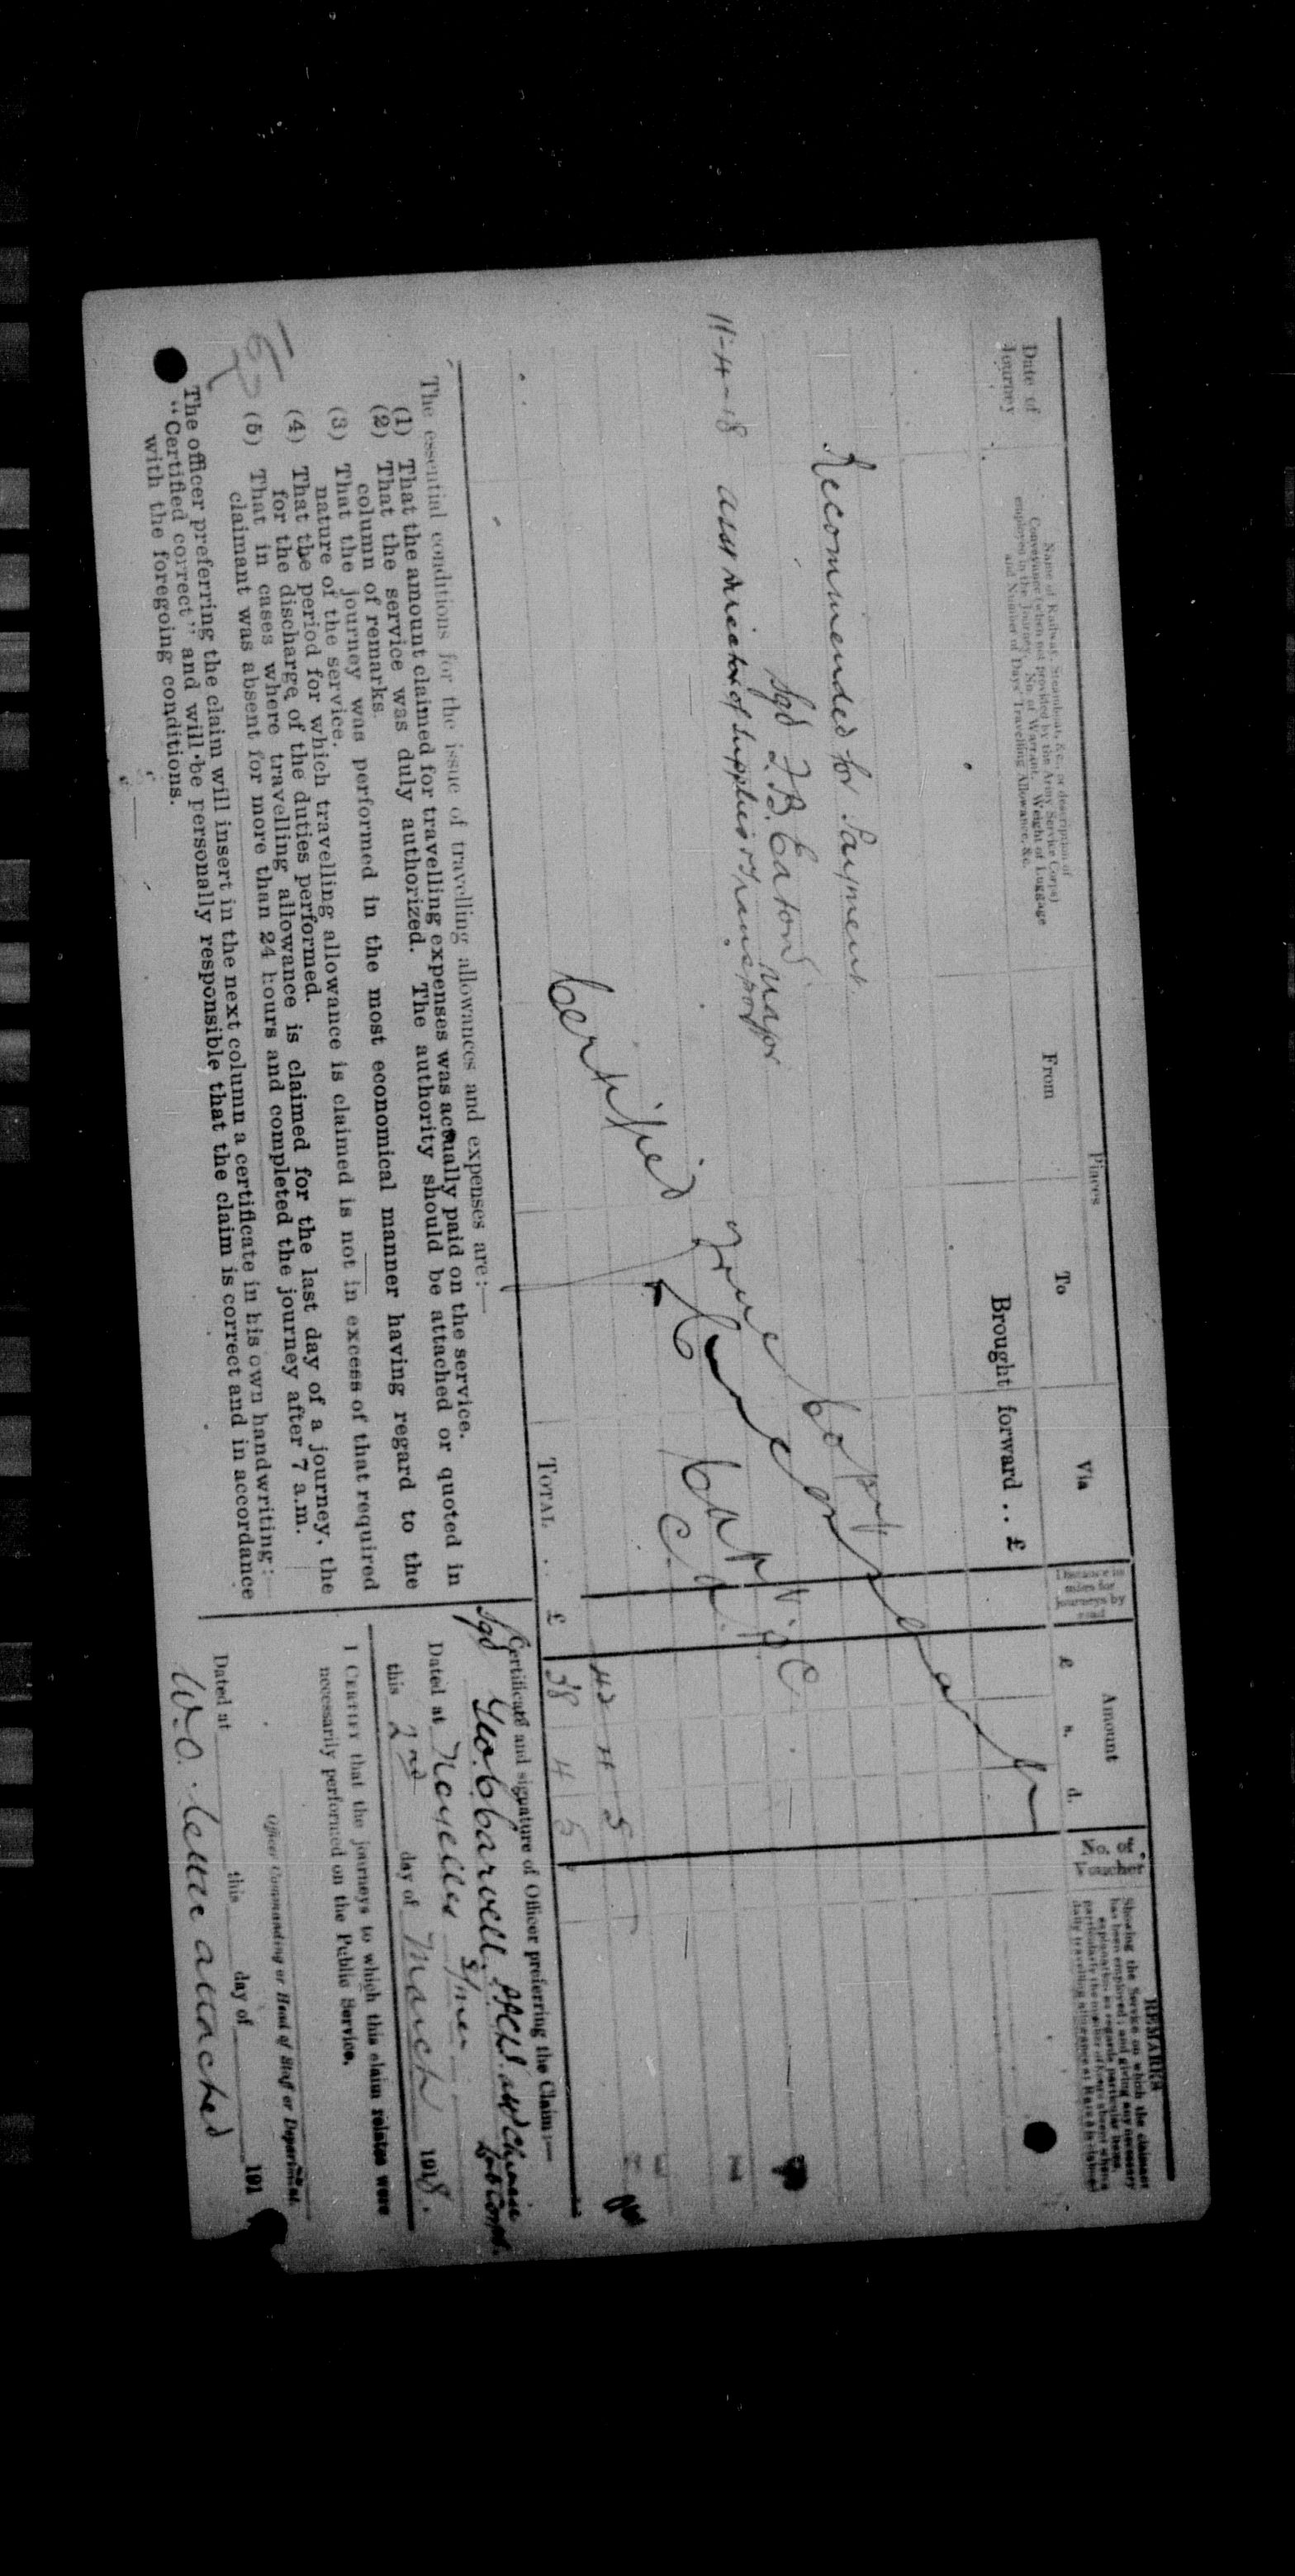 Date of
Journey
Name of Railway, Steamboat, &c., or description of
Conveyance (when not provided by the Army Service Corps)
employed in the Journey. No. of Warrant. Weight of Luggage
and Number of Days' Travelling Allowance, &c.
Places
From
To
Via
Distance in
miles for
journeys by
road
Amount
£ s. d.
No. of
Voucher
REMARKS
Showing the Service on which the claimant
has been employed; and giving any necessary
explanation as regards particular items,
Brought forward . . £
Recommended for Payment
Sgd F.B. Eaton Major
11-4-18 Asst Director of Supplies & Transport
Certified True Copy
Capt
42 4 5
TOTAL . . £ 38 4 5
The essential conditions for the issue of travelling allowances and expenses are:—
(1) That the amount claimed for travelling expenses was actually paid on the service.
(2) That the service was duly authorized. The authority should be attached or quoted in
column of remarks.
(3) That the journey was performed in the most economical manner having regard to the
nature of the service.
(4) That the period for which travelling allowance is claimed is not in excess of that required
for the discharge of the duties performed.
(5) That in cases where travelling allowance is claimed for the last day of a journey, the
claimant was absent for more than 24 hours and completed the journey after 7 a.m.
The officer preferring the claim will insert in the next column a certificate in his own handwriting:—
"Certified correct" and will be personally responsible that the claim is correct and in accordance
with the foregoing conditions.
Certificate and signature of Officer preferring the Claim:—
Sgd Geo. C Carvell, Chinese
Lab Corps.
Dated at Noyelles s/mer
this 2nd day of March 1918.
I CERTIFY that the journeys to which this claim relates were
necessarily performed on the Public Service.
Officer Commanding or Head of Staff or Department.
Dated at this day of 191
W.O. letter attached